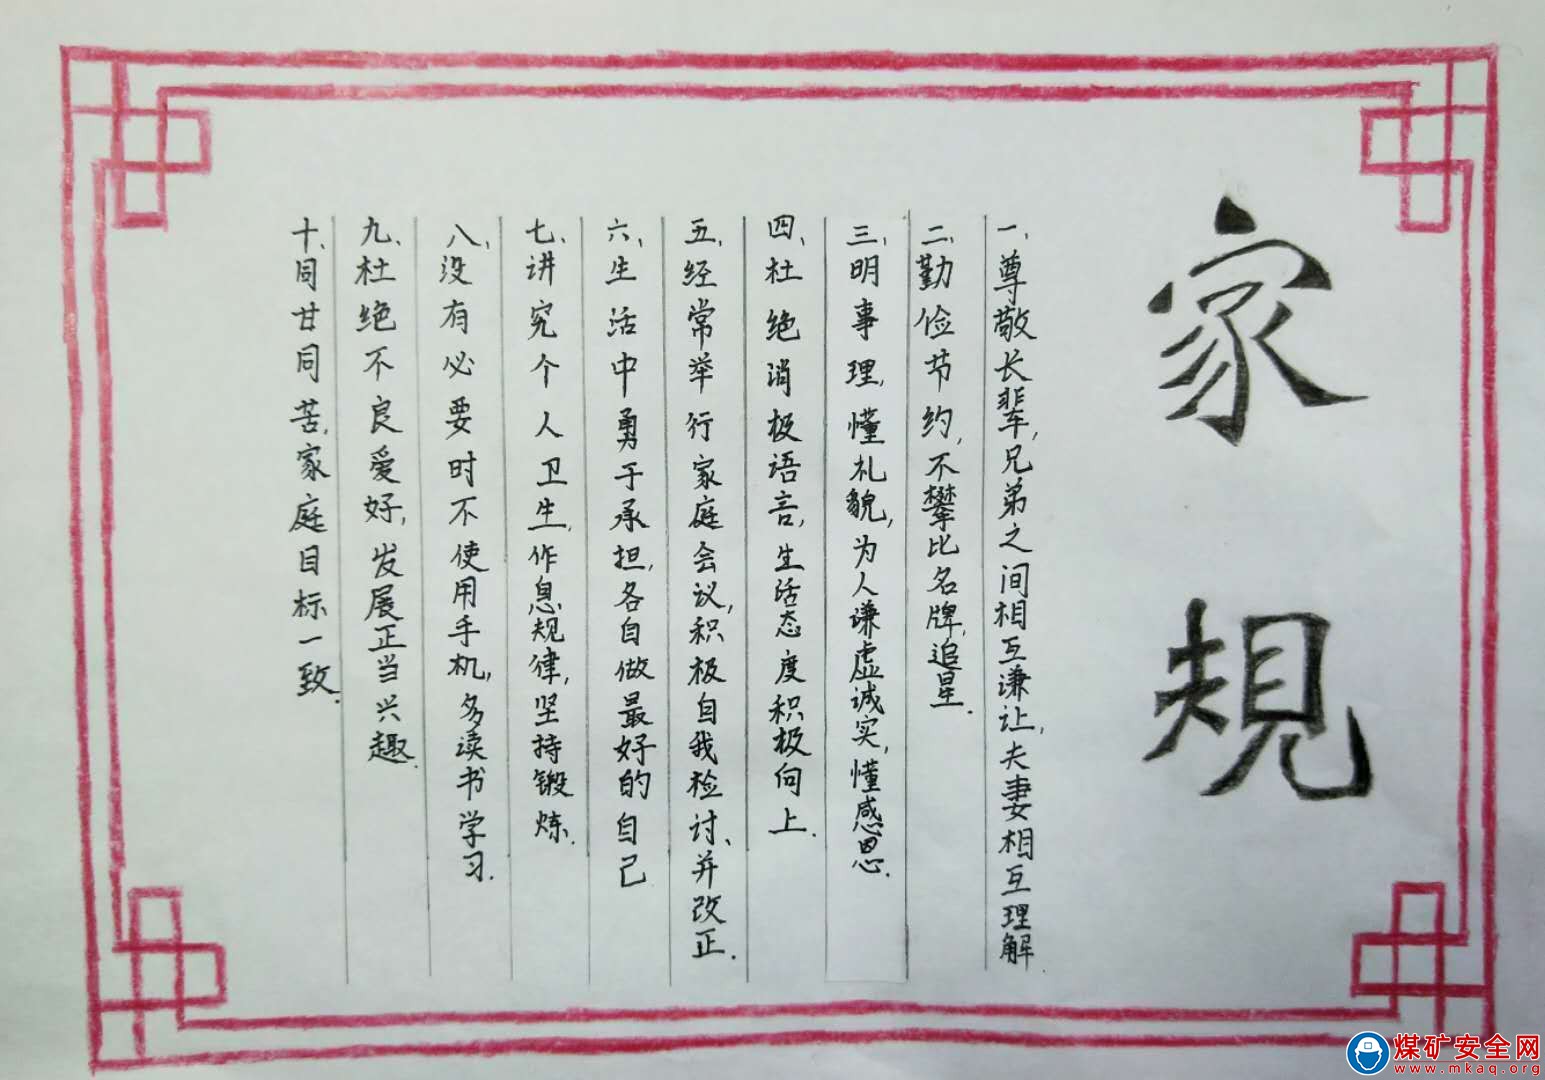 家规
一、尊敬长辈，兄弟之间相互谦让，夫妻相互理解.
二、勤俭节约，不攀比名牌，追星.
三、明事理，懂礼貌，为人谦虚诚实，懂感恩.
四、杜绝消极语言，生活态度积极向上.
五、经常举行家庭会议，积极自我检讨、并改正.
六、生活中勇于承担，各自做最好的自己
七、讲究个人卫生，作息规律，坚持锻炼.
八、没有必要时不使用手机，多读书学习.
九、杜绝不良爱好，发展正当兴趣.
十、同甘同苦，家庭目标一致.
煤矿安全网
www.mkaq.org